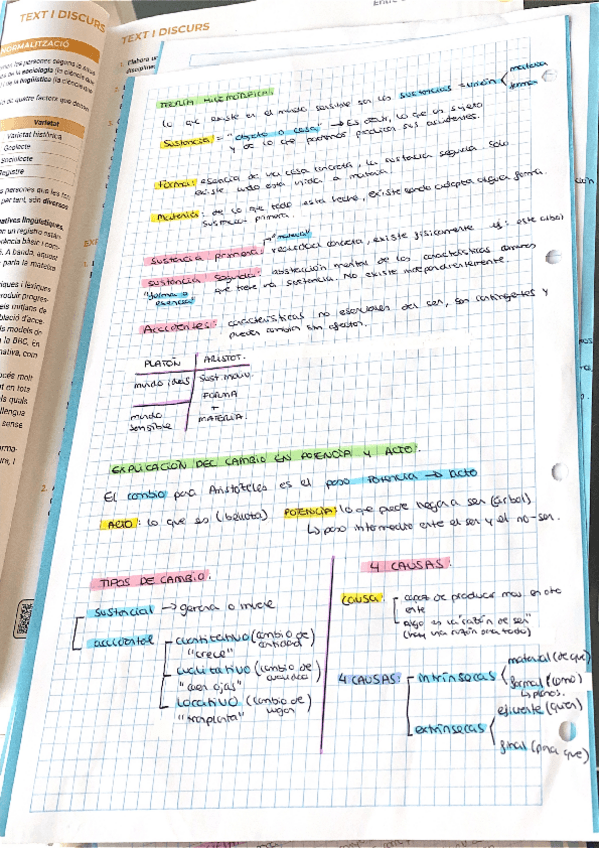 TEXT I DISCURS
TEXT I DISCURS
NORMALITZACIÓ
Varietat
Varietat històrica
Geolecte
Sociolecte
Registre
Elabora un
TEORÍA HILEMÓRFICA:
Lo que existe en el mundo sensible son las sustancias = unión materia
forma
Sustancia = "objeto o cosa" → Es decir, lo que es sujeto
y de lo que podemos predicar sus accidentes.
Forma: esencia de una cosa concreta, la sustancia segunda. Solo
existe unida a materia.
Materia: de lo que todo está hecho, existe cuando adopta alguna forma.
Sustancia primera.
"material"
Sustancia primera: realidad concreta, existe físicamente ej: este árbol
Sustancia segunda: abstracción mental de las características comunes
"forma o esencia" que tiene una sustancia. No existe independientemente.
Accidentes: características no esenciales del ser, son contingentes y
pueden cambiar sin afectar.
PLATÓN | ARISTOT.
mundo ideas | sust. indiv.
FORMA
+
mundo sensible | MATERIA.
EXPLICACIÓN DEL CAMBIO EN POTENCIA Y ACTO.
El cambio para Aristóteles es el paso Potencia → acto
ACTO: lo que es (bellota) POTENCIA: lo que puede llegar a ser (árbol)
↳ paso intermedio entre el ser y el no-ser.
TIPOS DE CAMBIO.
Sustancial → genera o muere
accidental
cuantitativo (cambio de cantidad)
"crece"
cualitativo (cambio de cualidad)
"caen ojas"
locativo (cambio de lugar)
"trasplanta"
4 CAUSAS.
CAUSA:
capaz de producir mov. en otro
ente
algo es la "razón de ser"
(hay una razón para todo)
4 CAUSAS:
intrínsecas
material (de que)
formal (como)
↳ planos.
extrínsecas
eficiente (quien)
final (para que)